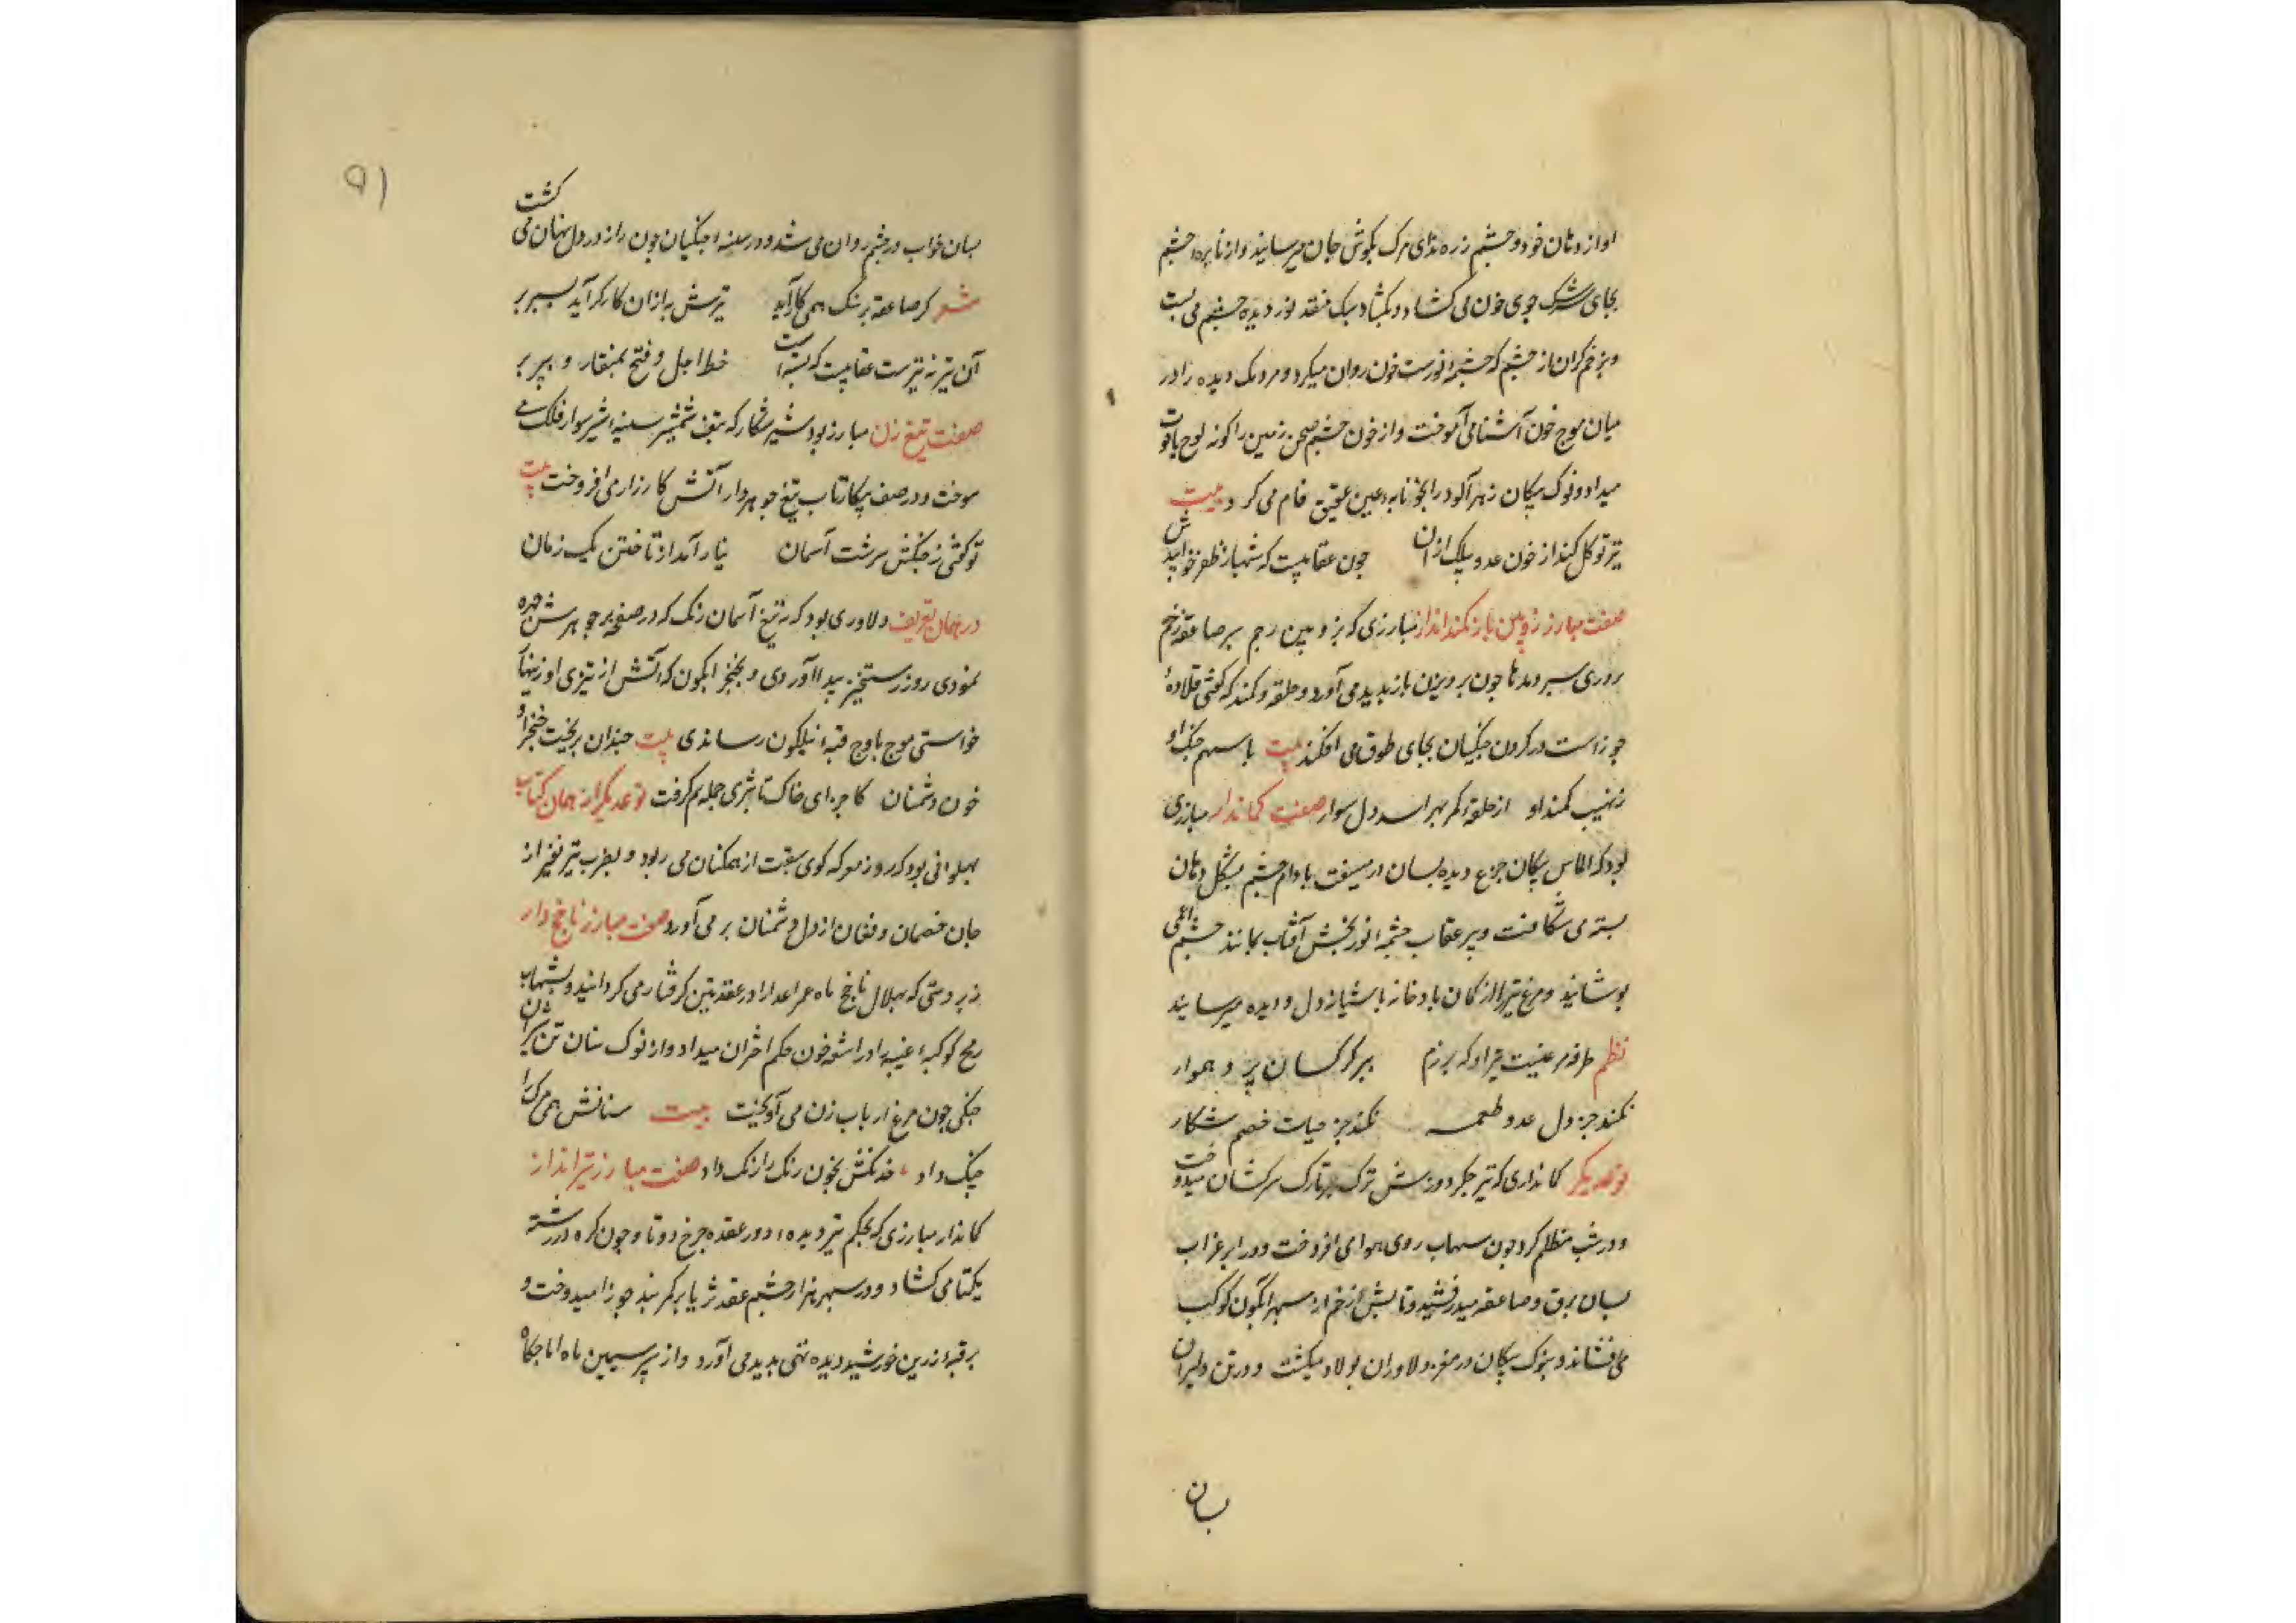 اواز دهان خود و چشم زره ندای مرک بکوش جان میرسانید و از نایره چشم
بجای سرشک جوی خون می کشاد و بکشاد یک نقد نور دیده چشم می بست
و بزخم کران از چشم که چشمه نورست خون روان میکرد و مردمک دیده را در
میان موج خون آشنا می آموخت و از خون چشم صحن زمین را کونه لوح یاقوت
میداد و نوک پیکان زهر آلود را بخونابه عین عقیق فام می کرد بیت
تیر تو کل کند از خون عدو پیلک از ان جون عقابیست که شهباز ظفر خوانیدش
صفت مبارز زوپین باز کمند انداز مبارزی که بزوپین رجم بر صاعقه زخم
بر روی سپر مه ها جون پرویزن باز پدید می آورد و حلقه کمند که کفتی قلاده
جوزاست در کردن جنکیان بجای طوق می افکند بیت با سهم جنک او
زنهیب کمند او از حلقه کمر بهراسد دل سوار صفت کماندار مبارزی
بود که الماس پیکان جزع دیده بسان در میسفت بادام چشم بشکل دهان
بستری شکافت و پر عقاب چشمه نوربخش آفتاب بمانند چشم اعمی
پوشانید و مرغ تیر را از کمان باد خانه باشیانه دل و دیده میرسانید
نظم طرفه مرغیست تیر او که برزم ببر کرکسان پرد هموار
نکند جز دل عدو طعمه نکند جز حیات خصم شکار
نوعدیکر کمانداری که تیر جکر دوزش ترک بر تارک سرکشان میدوخت
و در شب مظلم کرد جون سهاب روی هوا می افروخت و در ابر غراب
بسان برق و صاعقه میدرفشید و تابش زخم از سپهر آبکون کوکب
می افشاند و بنوک پیکان در مغز دلاوران پولاد میکشت و در تن دلیران
بسان
۹۱
بسان خواب در چشم روان می شد و در سینه جنکیان جون راز در دل نهان می کشت
شعر کر صاعقه بر سنک همی کار آید تیرش به ازان کارکر آید بسپر بر
آن تیر نه تیرست عقابیست که بسته است خط اجل و فتح بمنقار و بپر بر
صفت تیغ زن مبارز بود شیر شکار که بتف شمشیر سینه شیر سوار فلک می
سوخت و در صف پیکار تاب تیغ جوهردار آتش کارزار می افروخت بیت
تو کفتی ز جنکش سرشت آسمان نیارامد از تاختن یک زمان
در همان تعریف دلاوری بود که تیغ آسمان رنک که در صفحه بر جوهرش چهره
نمودی روز رستخیز پیدا آوردی و بخنجر ابکون که آتش از تیزی او زینهار
خواستی موج باوج قبه نیلکون رسانذی بیت چندان بریخت خنجر او
خون دشمنان کاجزای خاک تا بثری جمله نم کرفت نوعدیکر از همان کتاب
پهلوانی بود که روز معرکه کوی سبقت از همکنان می ربود و بضرب تیر نفیر از
جان خصمان و فغان از دل دشمنان بر می آورد صفت مبارز ناجخ دار
زبر دستی که بهلال ناجخ ماه عمر اعدا را در عقدتین کرفتار می کردانید و بشهاب
رمح کوکبه غیبه را در اشعه خون حکم اختران میداد و از نوک سنان تن سرکشان
جنکی جون مرغ ار باب زن می آویخت بیت سنانش همی مرک را
جنک داد خدنکش بخون رنک را رنک داد صفت مبارز تیر انداز
کماندار مبارزی که بحکم تیر دیده دور عقده چرخ دوتا و جون کره در رشته
یکتا می کشاد و در سپهر هزار چشم عقد ثریا بر کمر بند جوزا میدوخت و
بر قبه زرین خورشید دیده تنی پدید می آورد و از سپر سیمین ماه اماجکاه